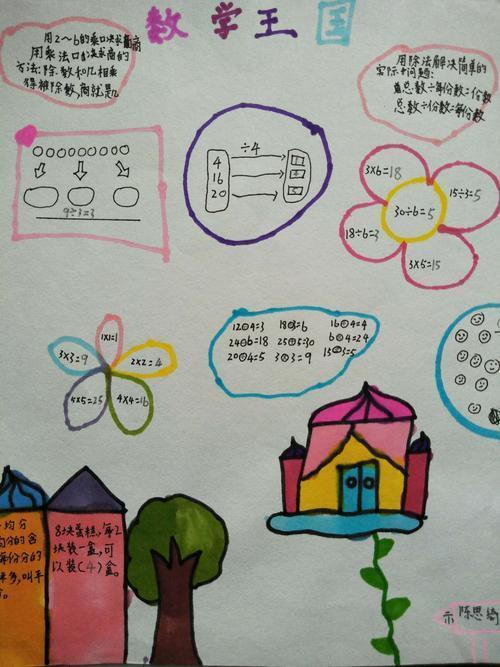 数学王国
用2～6的乘口决求商
用乘法口决求商的
方法:除数和几相乘
得被除数,商就是几
用除法解决简单的
实际问题:
总数÷每份数=份数
总数÷份数=每份数
9÷3=3
÷4
4
16
20
3×6=18
15÷3=5
30÷6=5
18÷6=3
3×5=15
1×1=1
3×3=9
2×2=4
5×5=25
4×4=16
12÷4=3 18÷3=6 16÷4=4
25+5=30 6×4=24
20÷4=5 3×3=9
均分
8块蛋糕,每2
块装一盒,可
以装(4)盒。
示 陈思绮